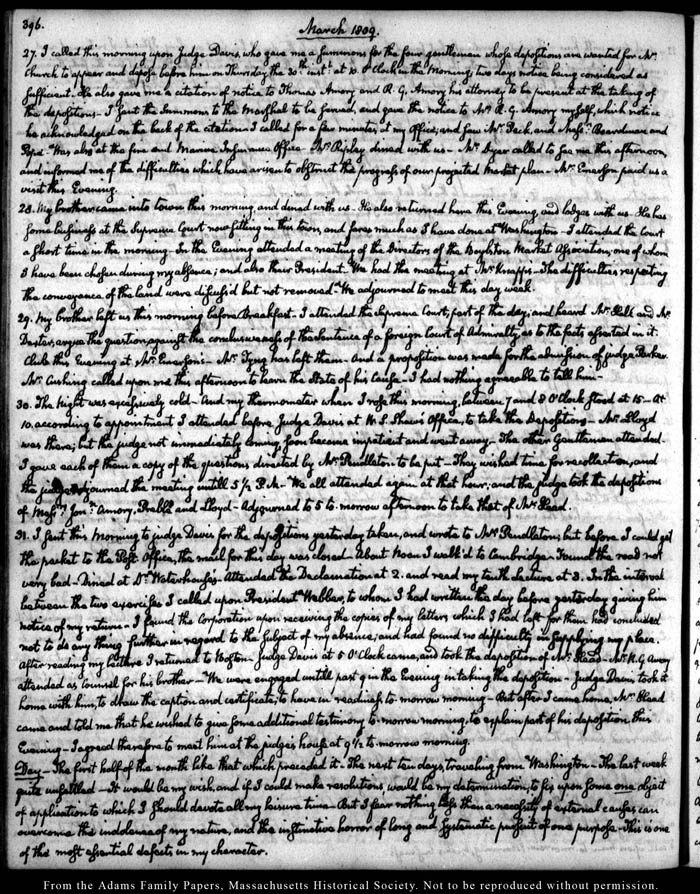 396.
March 1809.
27. I called this morning upon Judge Davis, who gave me a summons for the four gentlemen whose depositions are wanted for Mr.
Church to appear and depose before him on Thursday the 30th inst. at 10. O'Clock in the Morning; two days notice being considered as
sufficient. He also gave me a citation of notice to Thomas Amory and R. G. Amory his attorney to be present at the taking of
the depositions. I sent the Summons to the Marshal to be served, and gave the notice to Mr. R. G. Amory myself, which notice
he acknowledged on the back of the citation. I called for a few minutes, at my Office; and saw Mr. Peck, and Messrs. Boardman and
Pope. Was also at the fire and Marine Insurance Office. Mr. Ripley dined with us. Mr. Dyer called to see me this afternoon,
and informed me of the difficulties which have arisen to obstruct the progress of our projected Market plan. Mr. Emerson paid us a
visit this Evening.
28. My brother came into town this morning, and dined with us. He also returned here this Evening, and lodges with us. He has
some business at the Supreme Court now sitting in this town, and fares much as I have done at Washington. I attended the Court
a short time in the morning. In the Evening attended a meeting of the Directors of the Boylston Market Association; one of whom
I have been chosen during my absence; and also their President. We had the meeting at Mr. Knapp's. The difficulties respecting
the conveyance of the land were discuss'd but not removed. We adjourned to meet this day week.
29. My brother left us this morning before Breakfast. I attended the Supreme Court, part of the day; and heard Mr. and Mr.
Dexter, argue the question, against the conclusiveness of the sentence of a foreign Court of Admiralty, as to the facts asserted in it.
Club this Evening at Mr. Emerson's. Mr. Tyng has left them. And a proposition was made for the admission of judge Parker.
Mr. Cushing called upon me this afternoon to learn the State of his Cause. I had nothing agreeable to tell him.
30. The Night was excessively cold. And my thermometer when I rose this morning, between 7 and 8 O'Clock stood at 15. At
10. according to appointment I attended before Judge Davis at W. S. Shaw's Office, to take the Depositions. Mr. Lloyd
was there; but the judge not immediately coming, soon became impatient and went away. The other Gentlemen attended.
I gave each of them a copy of the questions directed by Mr. Pendleton to be put. They wished time for recollection; and
the judge adjourned the meeting untill 5½ P.M. We all attended again at that hour; and the judge took the depositions
of Messrs. Jonn. Amory, Preble and Lloyd. Adjourned to 5 to-morrow afternoon to take that of Mr. Head.
31. I sent this Morning to judge Davis for the depositions yesterday taken, and wrote to Mr. Pendleton; but before I could get
the packet to the Post-Office, the mail for this day was closed. About Noon I walk'd to Cambridge. Found the road not
very bad. Dined at Dr. Waterhouse's. Attended the Declamation at 2. and read my tenth Lecture at 3. In the interval
between the two exercises I called upon President Webber, to whom I had written the day before yesterday giving him
notice of my return. I found the Corporation upon receiving the copies of my letters, which I had left for them had concluded
not to do any thing further in regard to the subject of my absence; and had found no difficulty in supplying my place.
After reading my lecture I returned to Boston. Judge Davis at 5 O'Clock came, and took the deposition of Mr. Head. Mr. R. G. Amory
attended as Counsel for his brother. We were engaged untill past 9 in the Evening in taking the deposition. Judge Davis took it
home with him, to draw the caption and certificate, to have in readiness to-morrow morning. But after I came home, Mr. Head
came and told me that he wished to give some additional testimony to-morrow morning, to explain part of his deposition this
Evening. I agreed therefore to meet him at the judge's house at 9½ to-morrow morning.
Day. The first half of the month like that which preceded it. The next ten days, traveling from Washington. The last week
quite unsettled. It would be my wish, and if I could make resolutions would be my determination, to fix upon some one object
of application to which I should devote all my leisure time. But I fear nothing less than a necessity of external causes can
overcome the indolence of my nature, and the instinctive horror of long and systematic pursuit of one purpose. This is one
of the most essential defects in my character.
From the Adams Family Papers, Massachusetts Historical Society. Not to be reproduced without permission.